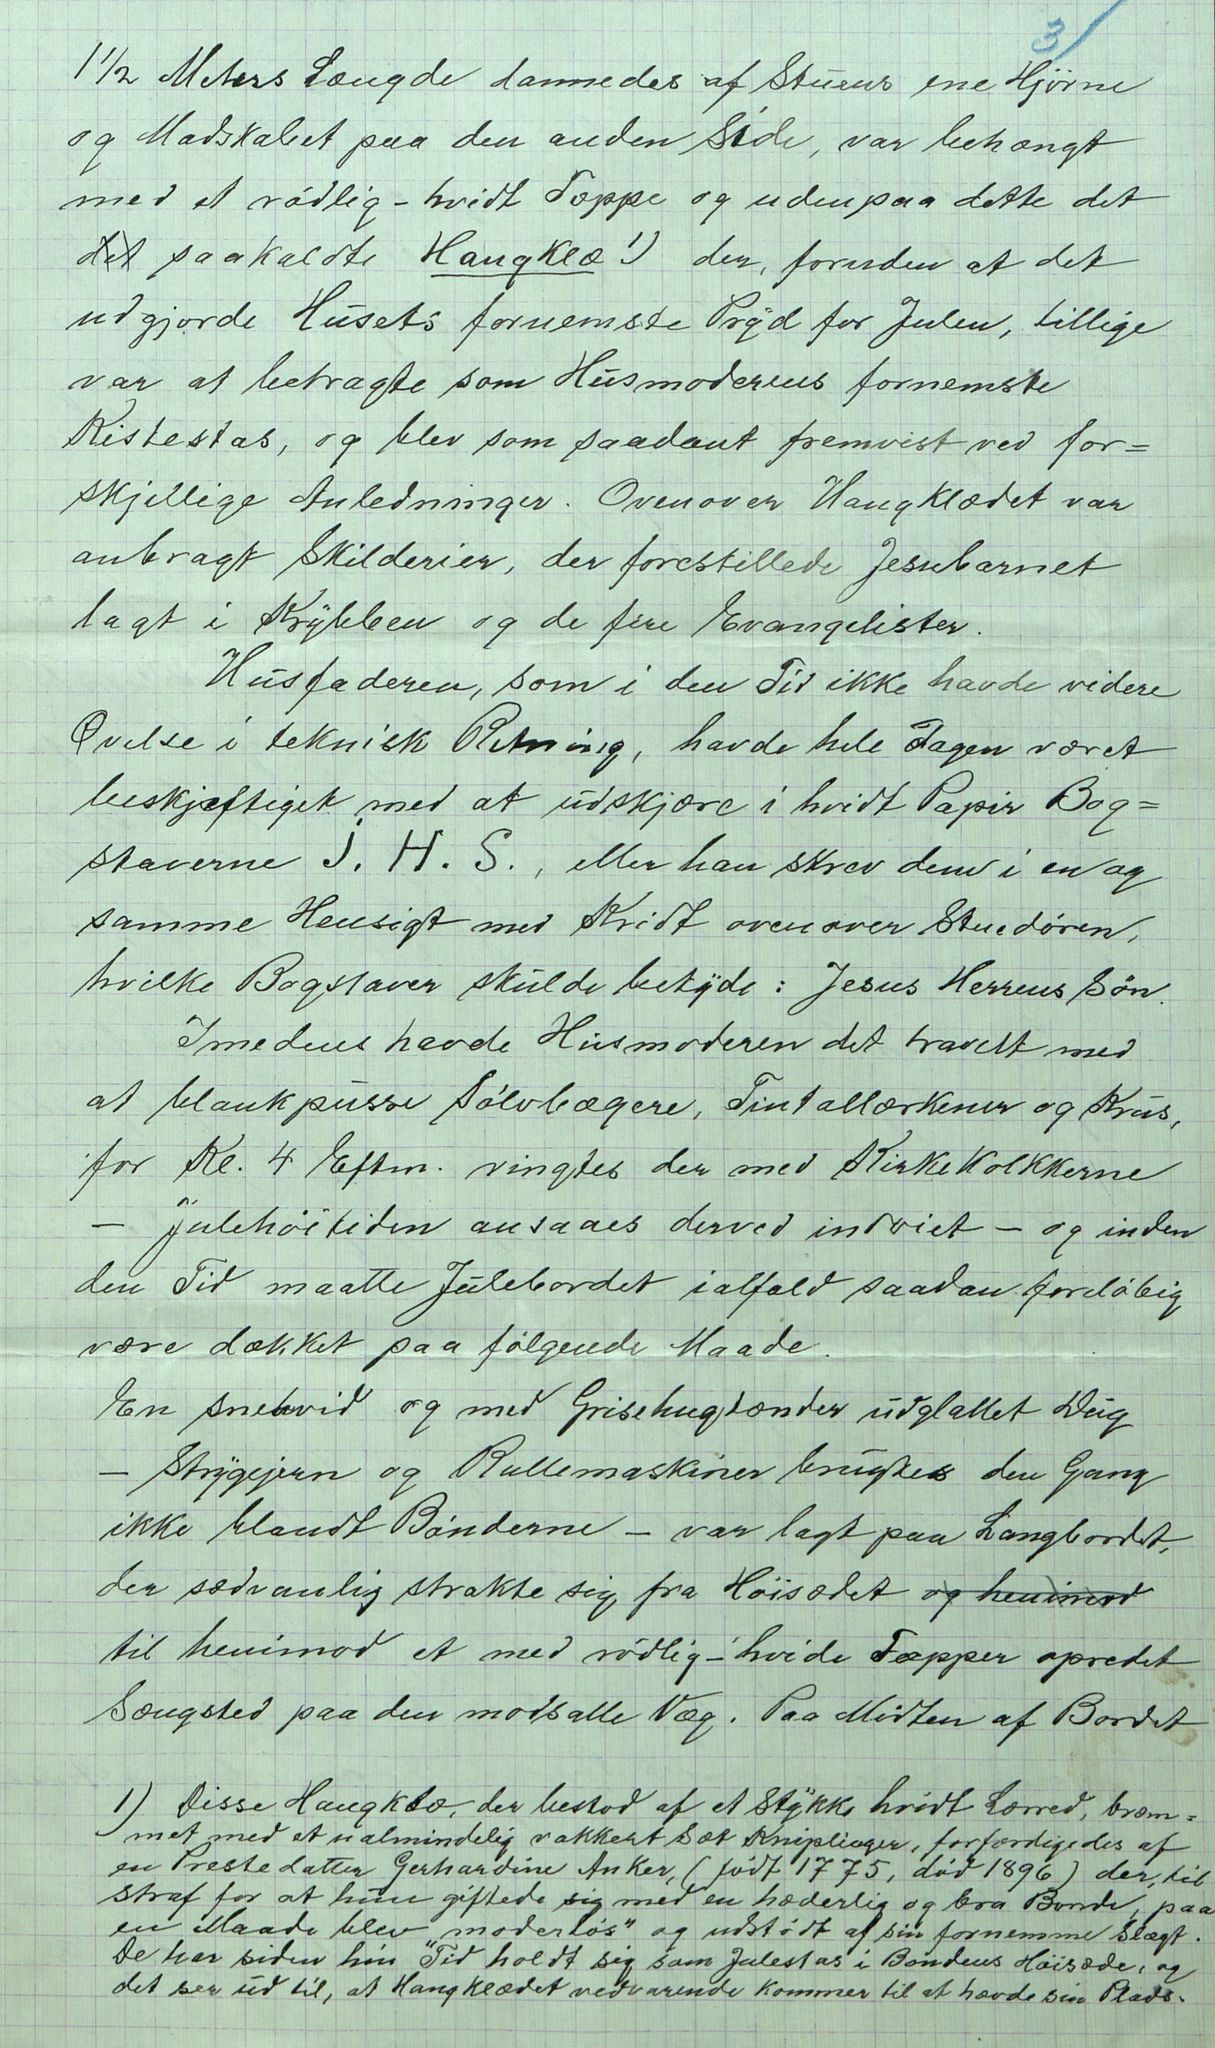 3/
1 1/2 Meters Længde dannedes af Stuens ene Hjörne
og Madskabet paa den anden Side, var behængt
med et rödlig-hvidt Tæppe og udenpaa dette det
det saakaldte Hangklæ 1) der, foruden at det
udgjorde Husets fornemste Pryd for Julen, tillige
var at betragte som Husmoderens fornemste
Kistestas, og blev som saadant fremvist ved for=
skjellige Anledninger. Ovenover Hangklædet var
anbragt Skilderier, der forestillede Jesubarnet
lagt i Krybben og de fire Evangelister.
Husfaderen, som i den Tid ikke havde videre
Øvelse i teknisk Retning, havde hele Dagen været
beskjæftiget med at udskjære i hvidt Papir Bog=
staverne J. H. S., eller han skrev dem i en og
samme Hensigt med Kridt ovenover Stuedören,
hvilke Bogstaver skulde betyde: Jesus Herrens Sön.
Imedens havde Husmoderen det travelt med
at blankpusse Sölvbægere, Tintallærkener og Krus,
for Kl. 4 Eftm. ringtes der med Kirkekolkkerne
- Julehöitiden ansaaes derved indviet - og inden
den Tid maatte Julebordet ialfald saadan forelöbig
være dækket paa fölgende Maade.
En snehvid og med Grisehugtænder udglattet Dug
- Strygejern og Rullemaskiner brugtes den Gang
ikke blandt Bönderne - var lagt paa Langbordet,
der sædvanlig strakte sig fra Höisædet og henimod
til henimod et med rödlig-hvide Tæpper opredet
Sængsted paa den modsatte Væg. Paa Midten af Bordet
1) Disse Hangklæ, der bestod af et Stykke hvidt Lærred, bræm=
met med et ualmindelig vakkert Sæt Kniplinger, forfærdigedes af
en Prestedatter Gerhardine Anker, (födt 1775, död 1896) der, til
straf for at hun giftede sig med en hæderlig og bra Bonde, paa
en Maade blev "moderlös" og udstödt af sin fornemme Slægt.
De har siden hin Tid holdt sig som Julestas i Bondens Höisæde, og
det ser ud til, at Hangklædet vedvarende kommer til at hævde sin Plads.